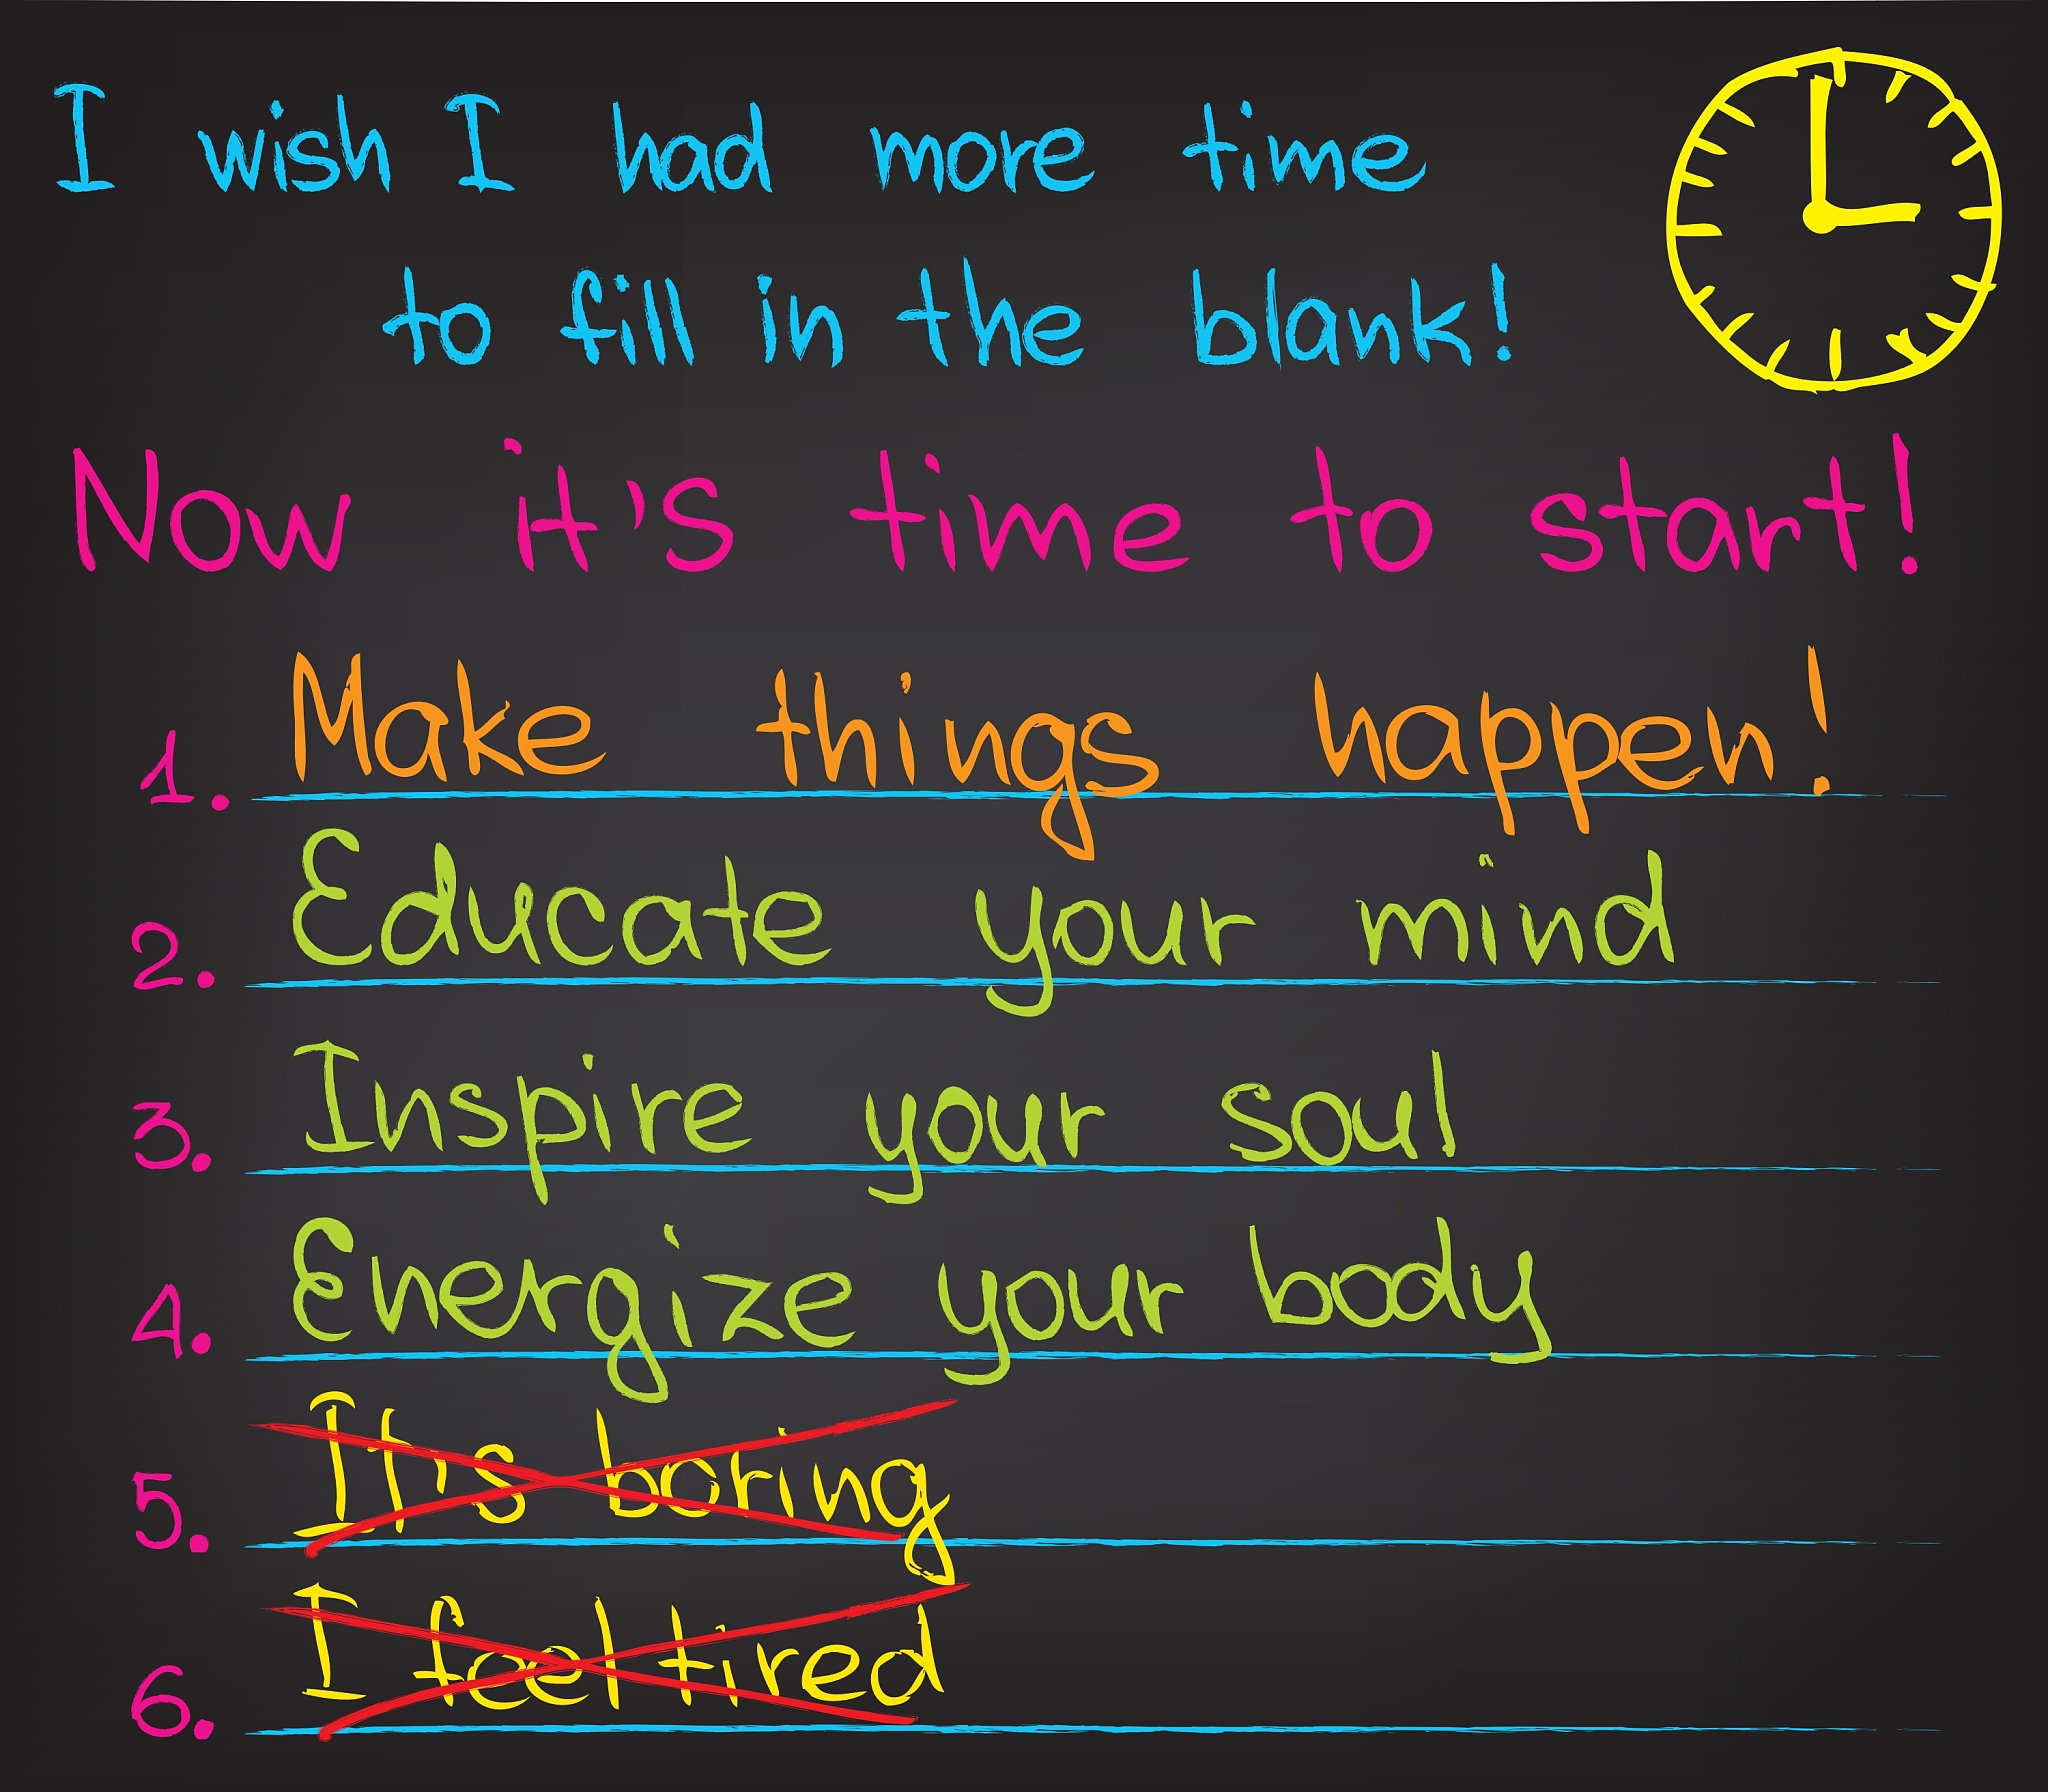 I wish I had more time
to fill in the blank!
Now it's time to start!
1. Make things happen!
2. Educate your mind
3. Inspire your soul
4. Energize your body
5. It's boring
6. I feel tired